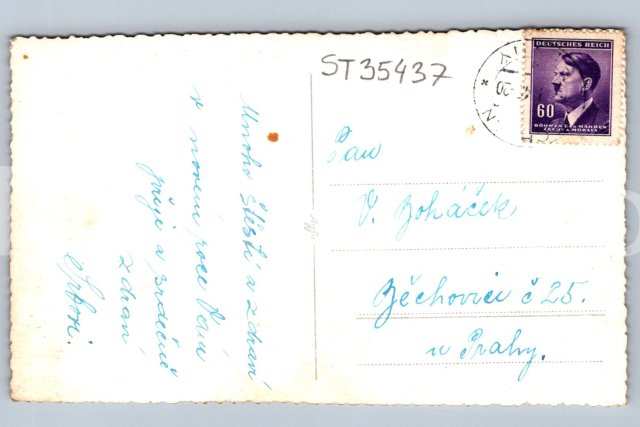 ST35437
DEUTSCHES REICH
60
BÖHMEN UND MÄHREN
ČECHY A MORAVA
Mnoho štěstí a zdraví
v novém roce Vám
přeje a srdečně
zdraví
Pan
V. Boháček
Běchovice č 25.
u Prahy.